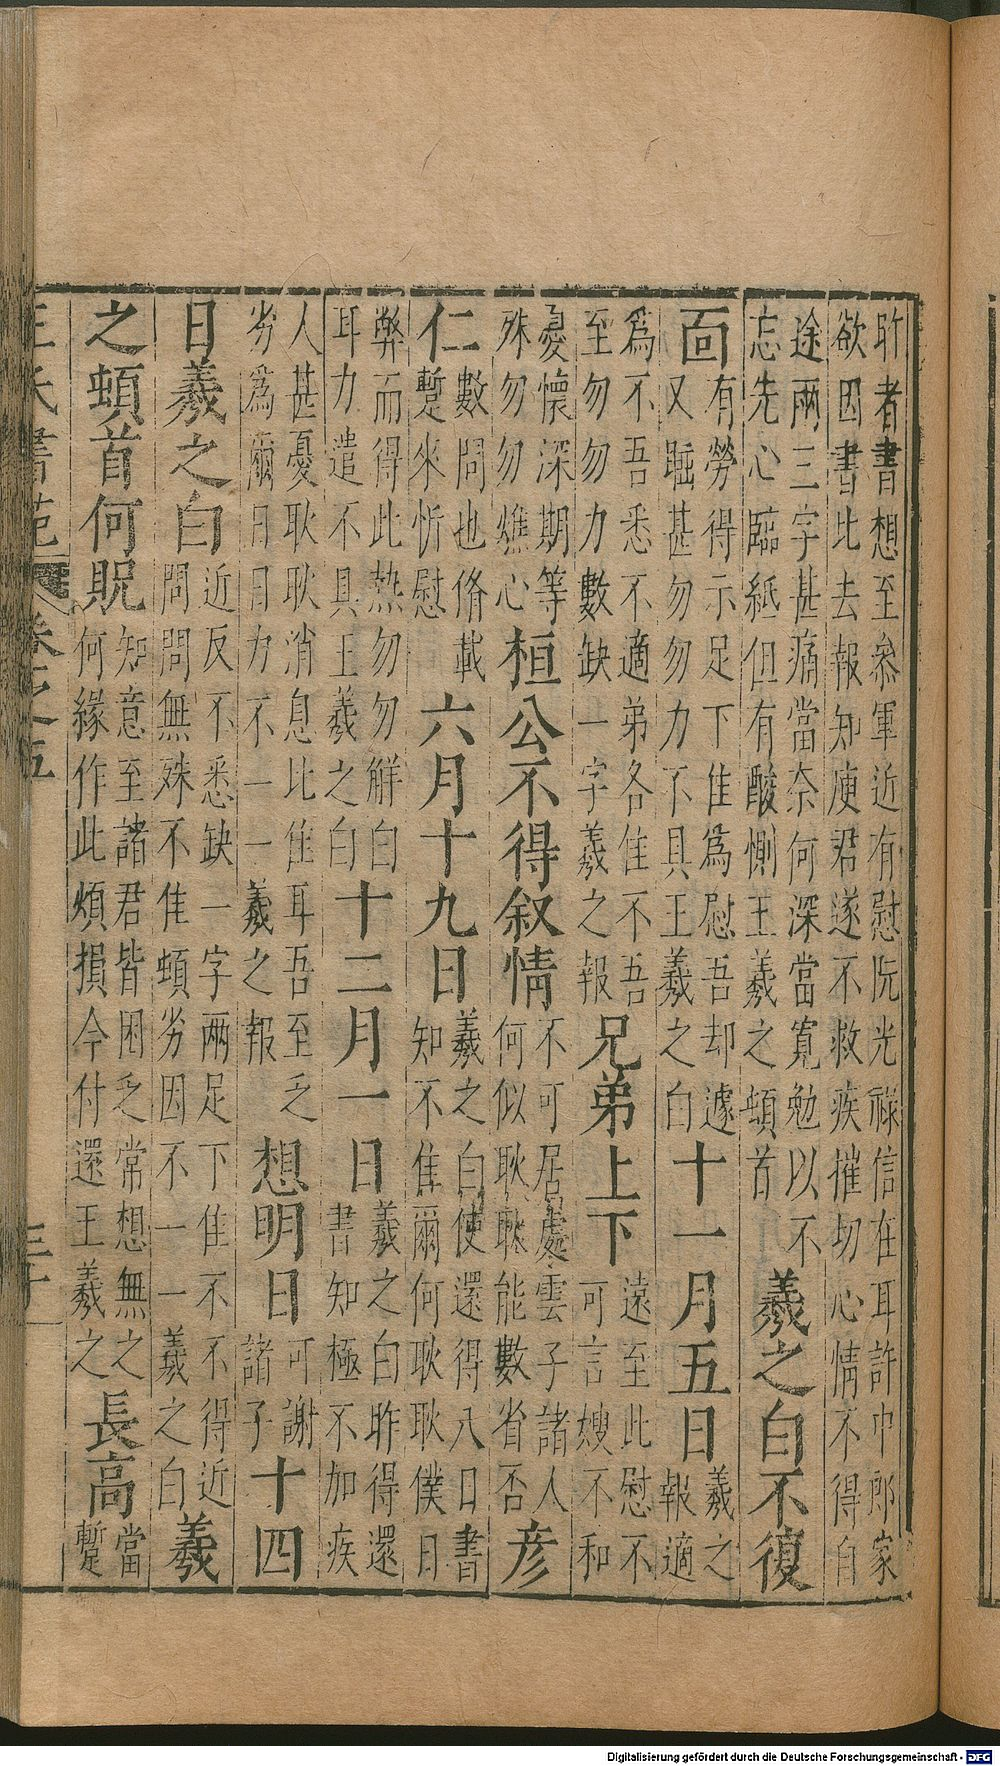 許者書想至參軍近有慰阮光祿信在耳許中郎家
欲因書比去報知庾君遂不救疾摧切心情不得自
途兩三字甚痛當奈何深當寬勉以不
忘先心臨紙但有酸惻王羲之頓首
羲之白不復
面
有勞得示足下隹為慰吾却遽
又踵甚勿勿力不具王羲之白
十一月五日
羲之
報適
為不吾悉不適弟各隹不吾
至勿勿力數缺一字羲之報
兄弟上下
遠至此慰不
可言嫂不和
憂懷深期等
殊勿勿燋心
桓公不得叙情
不可居處雲子諸人
何似耿耿能數省否
彥
仁
數問也脩載
蹔來忻慰
六月十九日
羲之白使還得八日書
知不隹爾何耿耿僕日
弊而得此熱勿勿觧白
耳力遣不具王羲之白
十二月一日
羲之白昨得還
書知極不加疾
人甚憂耿耿消息比隹耳吾至乏
劣為爾日日力不一一羲之報
想明日
可謝
諸子
十四
日羲之白
近反不悉缺一字兩足下隹不不得近
問問無殊不隹頓劣因不一一羲之白
羲
之頓首何貺
知意至諸君皆困乏常想無之
何緣作此煩損今付還王羲之
長高
當
蹔
王氏書苑 卷之五 三十
Digitalisierung gefördert durch die Deutsche Forschungsgemeinschaft - DFG